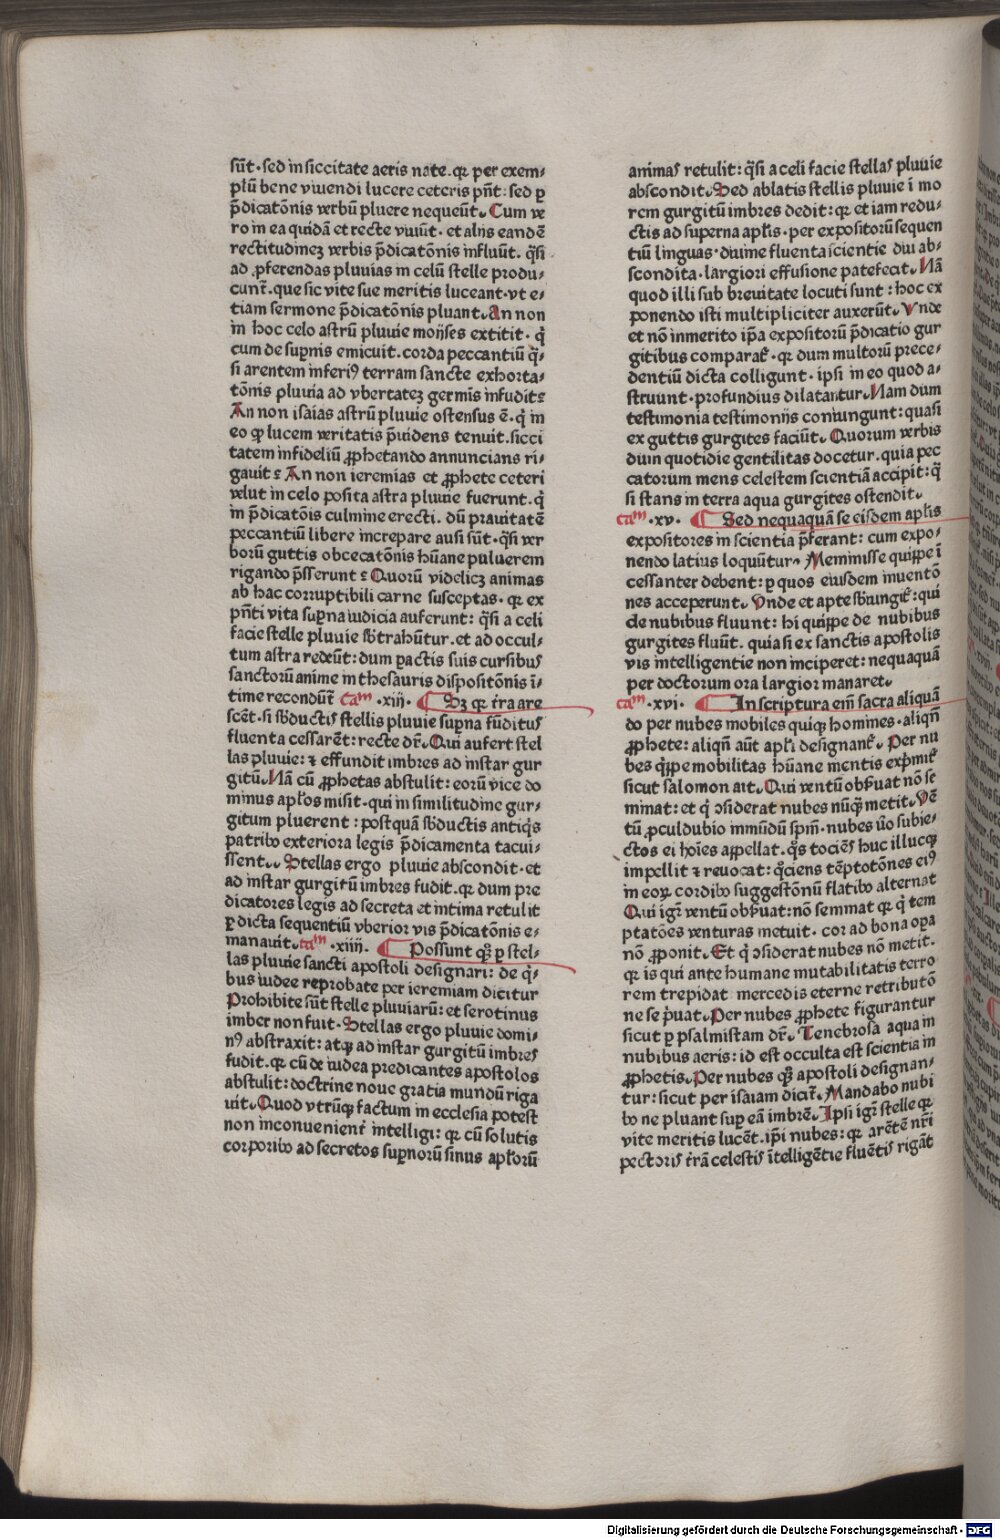 sūt·sed in siccitate aeris nate.qꝛ per exem-
plū bene viuendi lucere ceteris pn̄t:sed ꝑ
p̄dicatōnis verbū pluere nequeūt. Cum ve
ro in ea quidā et recte viuūt·et alijs eandē
rectitudinez verbis p̄dicatōnis influūt. qͣsi
ad ꝓferendas pluuias in celū stelle produ-
cunt̄.que sic vite sue meritis luceant·vt e-
tiam sermone p̄dicatōnis pluant. An non
in hoc celo astrū pluuie moyses extitit·qͥ
cum de suꝑnis emicuit.corda peccantiū qͣ-
si arentem inferiꝰ terram sancte exhorta-
tōnis pluuia ad vbertatez germis infudit?
An non isaias astrū pluuie ostensus ē·qͥ in
eo ꝙ lucem veritatis p̄uidens tenuit.sicci
tatem infideliū ꝓphetando annuncians ri-
gauit? An non ieremias et ꝓphete ceteri
velut in celo posita astra pluuie fuerunt.qͥ
in p̄dicatōis culmine erecti. dū prauitatē
peccantiū libere increpare ausi sūt·qͣsi ver
borū guttis obcecatōnis hūane puluerem
rigando p̄sserunt? Quorū videlicꝫ animas
ab hac corruptibili carne susceptas·qꝛ ex
pn̄ti vita suꝑna iudicia auferunt:qͣsi a celi
facie stelle pluuie sb̄trahūtur.et ad occul-
tum astra redeūt:dum ꝑactis suis cursibus
sanctorū anime in thesauris dispositōnis ī-
time recondūt̄ Caᵐ·xiij· Sꝫ qꝛ tr̄a are
scēt·si sb̄ductis stellis pluuie suꝑna fūditus
fluenta cessarēt:recte dr̄. Qui aufert stel
las pluuie:⁊ effundit imbres ad instar gur
gitū. Nā cū ꝓphetas abstulit:eorū vice do
minus apl̄os misit·qui in similitudine gur-
gitum pluerent:postquā sb̄ductis antiqͥs
patribꝰ exteriora legis p̄dicamenta tacui-
ssent. Stellas ergo pluuie abscondit·et
ad instar gurgitū imbres fudit.qꝛ dum pre
dicatores legis ad secreta et intima retulit
ꝑ dicta sequentiū vberior vis p̄dicatōnis e-
manauit.caᵐ·xiiij. Possunt qꝫ ꝑ stel-
las pluuie sancti apostoli designari:de qͥ-
bus iudee reprobate per ieremiam dicitur
Prohibite sūt stelle pluuiarū:et serotinus
imber non fuit·Stellas ergo pluuie domi-
nꝰ abstraxit:atqꝫ ad instar gurgitū imbres
fudit.qꝛ cū de iudea predicantes apostolos
abstulit:doctrine noue gratia mundū riga
uit. Quod vtrūqꝫ factum in ecclesia potest
non inconuenient̄ intelligi:qꝛ cū solutis
corporibꝰ ad secretos suꝑnorū sinus apl̄orū
animas retulit:qͣsi a celi facie stellas pluuie
abscondit. Sed ablatis stellis pluuie ī mo
rem gurgitū imbres dedit:qꝛ etiam redu-
ctis ad superna apl̄is·per expositorū sequen
tiū linguas·diuine fluenta scientie diu ab-
scondita·largiori effusione patefecit. Nā
quod illi sub breuitate locuti sunt:hoc ex
ponendo isti multipliciter auxerūt. Vnde
et nō inmerito ip̄a expositorū p̄dicatio gur
gitibus comparat̄·qꝛ dum multorū prece-
dentiū dicta colligunt·ipsi in eo quod a-
struunt·profundius dilatantur. Nam dum
testimonia testimonijs coniungunt:quasi
ex guttis gurgites faciūt. Quorum verbis
dum quotidie gentilitas docetur.quia pec
catorum mens celestem scientiā accipit:qͣ
si stans in terra aqua gurgites ostendit.
caᵐ·xv. Sed nequaquā se eisdem apl̄is
expositores in scientia p̄ferant:cum expo-
nendo latius loquūtur. Meminisse quippe ī
cessanter debent:ꝑ quos eiusdem inuentō
nes acceperunt. Vnde et apte sb̄iungit̄:qui
de nubibus fluunt:hi quippe de nubibus
gurgites fluūt.quia si ex sanctis apostolis
vis intelligentie non inciperet:nequaquā
per doctorum ora largior manaret.
caᵐ·xvi. In scriptura em̄ sacra aliquā
do per nubes mobiles quiqꝫ homines·aliqn̄
ꝓphete:aliqn̄ aūt apl̄i designant̄. Per nu
bes qͥppe mobilitas hūane mentis exp̄mit̄
sicut salomon ait. Qui ventū obs̄uat nō se
minat:et qͥ ↄsiderat nubes nūqͣ metit. Vē
tū ꝓculdubio immūdū spm̄·nubes v̄o subie-
ctos ei hoīes appellat.qͦs tociēs huc illucqꝫ
impellit ⁊ reuocat:qͦciens tēptotōnes eiꝰ
in eoꝝ cordibꝰ suggestōnū flatibꝰ alternat
Qui igr̄ ventū obs̄uat:nō seminat qꝛ qͥ tem
ptatōes venturas metuit·cor ad bona oꝑa
nō ꝓponit. Et qͥ ↄsiderat nubes nō metit.
qꝛ is qui ante humane mutabilitatis terro
rem trepidat mercedis eterne retributō
ne se p̄uat. Per nubes ꝓphete figurantur
sicut ꝑ psalmistam dr̄. Tenebrosa aqua in
nubibus aeris:id est occulta est scientia in
ꝓphetis. Per nubes qꝫ apostoli designan-
tur:sicut per isaiam dicit̄. Mandabo nubi
bꝰ ne pluant suꝑ eā imbrē. Ipsi igr̄ stelle qꝛ
vite meritis lucēt.ip̄i nubes:qꝛ arētē nr̄i
pectoris tr̄ā celestis ītelligētie fluētis rigāt
Digitalisierung gefördert durch die Deutsche Forschungsgemeinschaft - DFG